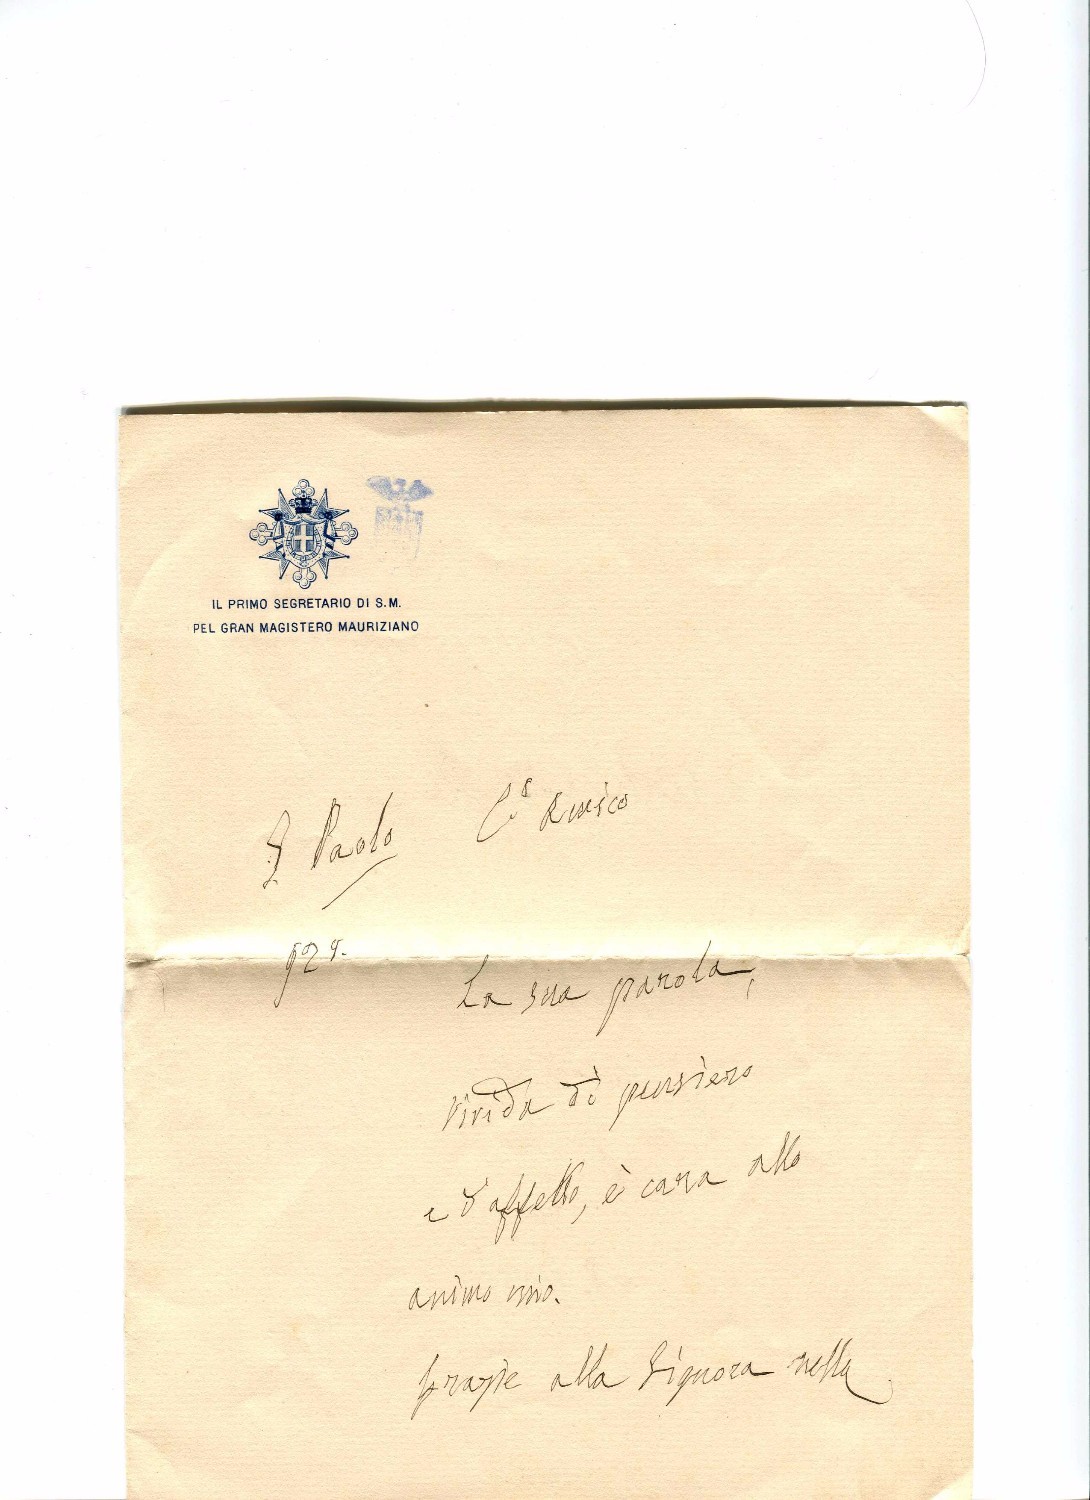 IL PRIMO SEGRETARIO DI S.M.
PEL GRAN MAGISTERO MAURIZIANO
S Paolo Cº Amico
929.
La sua parola,
vivida di pensiero
e d'affetto, è cara allo
animo mio.
Grazie alla Signora nella